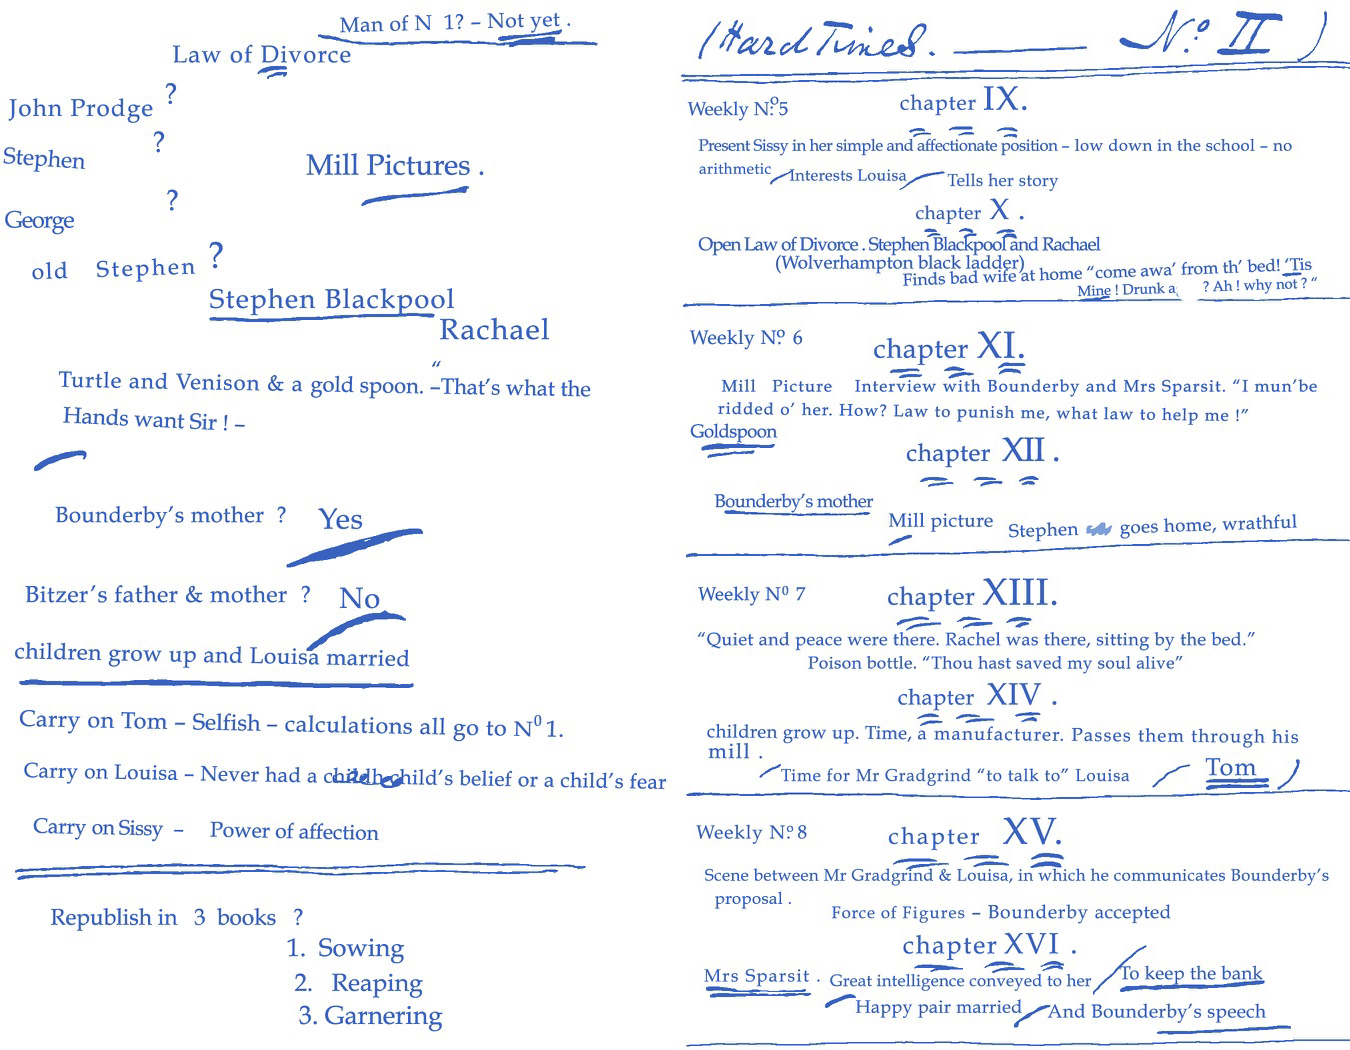 Man of N 1? – Not yet .
Law of Divorce
John Prodge ?
Stephen ?
Mill Pictures .
George ?
old Stephen ?
Stephen Blackpool
Rachael
Turtle and Venison & a gold spoon. – “That’s what the
Hands want Sir ! –
Bounderby’s mother ? Yes
Bitzer’s father & mother ? No
children grow up and Louisa married
Carry on Tom – Selfish – calculations all go to Nº 1.
Carry on Louisa – Never had a child’s belief or a child’s fear
Carry on Sissy – Power of affection
Republish in 3 books ?
1. Sowing
2. Reaping
3. Garnering
(Hard Times. — Nº: II )
Weekly Nº. 5
chapter IX.
Present Sissy in her simple and affectionate position – low down in the school – no
arithmetic / Interests Louisa / Tells her story
chapter X .
Open Law of Divorce . Stephen Blackpool and Rachael
(Wolverhampton black ladder)
Finds bad wife at home “come awa’ from th’ bed! ‘Tis
Mine ! Drunk a ? Ah ! why not ? “
Weekly Nº. 6
chapter XI.
Mill Picture Interview with Bounderby and Mrs Sparsit. “I mun’be
ridded o’ her. How? Law to punish me, what law to help me !”
Goldspoon
chapter XII .
Bounderby’s mother
Mill picture Stephen goes home, wrathful
Weekly Nº 7
chapter XIII.
“Quiet and peace were there. Rachel was there, sitting by the bed.”
Poison bottle. “Thou hast saved my soul alive”
chapter XIV .
children grow up. Time, a manufacturer. Passes them through his
mill .
/ Time for Mr Gradgrind “to talk to” Louisa / Tom )
Weekly Nº. 8
chapter XV.
Scene between Mr Gradgrind & Louisa, in which he communicates Bounderby’s
proposal .
Force of Figures – Bounderby accepted
chapter XVI .
Mrs Sparsit . Great intelligence conveyed to her / To keep the bank
/ Happy pair married / And Bounderby’s speech